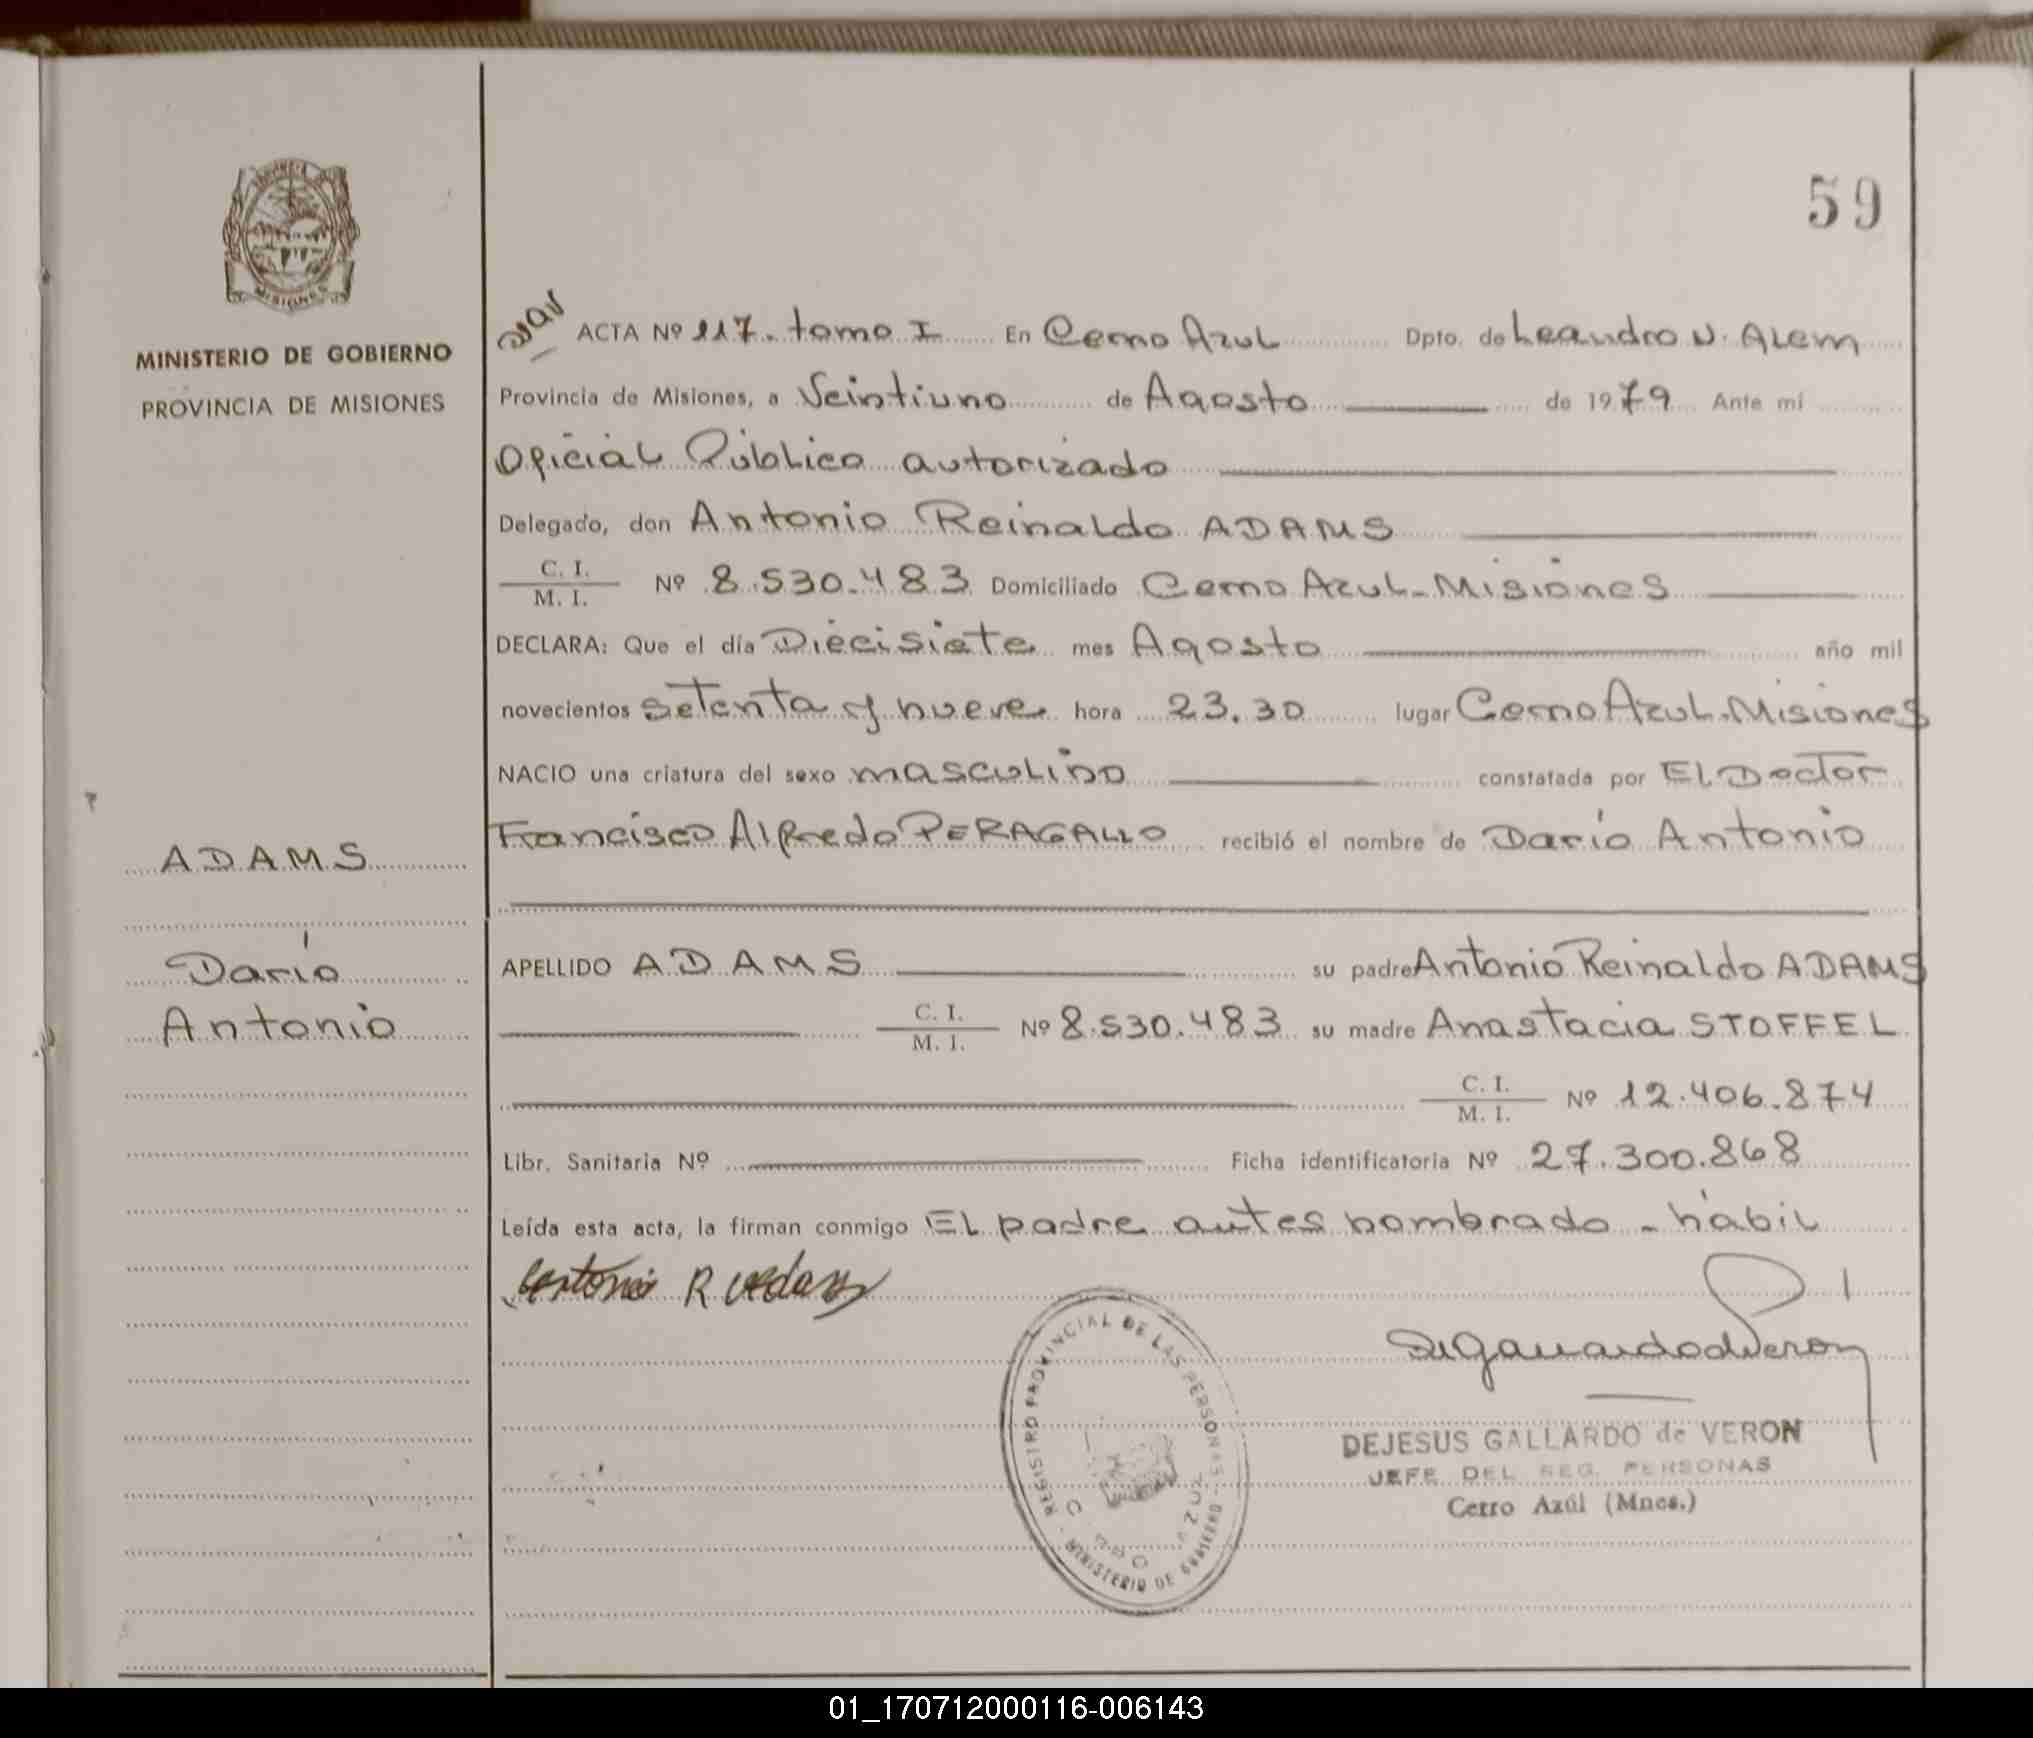 PROVINCIA
MISIONES
MINISTERIO DE GOBIERNO
PROVINCIA DE MISIONES
ADAMS
Darío
Antonio
59
ACTA Nº 117. tomo I En Cerro Azul Dpto. de Leandro N. Alem
Provincia de Misiones, a Veintiuno de Agosto de 1979 Ante mi
Oficial Público autorizado
Delegado, don Antonio Reinaldo ADAMS
C. I.
M. I. Nº 8.530.483 Domiciliado Cerro Azul-Misiones
DECLARA: Que el día Diecisiete mes Agosto año mil
novecientos setenta y nueve hora 23.30 lugar Cerro Azul-Misiones
NACIO una criatura del sexo masculino constatada por El Doctor
Francisco Alfredo PERAGALLO recibió el nombre de Darío Antonio
APELLIDO ADAMS su padre Antonio Reinaldo ADAMS
C. I.
M. I. Nº 8.530.483 su madre Anastacia STOFFEL
C. I.
M. I. Nº 12.406.874
Libr. Sanitaria Nº Ficha identificatoria Nº 27.300.868
Leída esta acta, la firman conmigo El padre antes nombrado - hábil
Antonio R Adams
REGISTRO PROVINCIAL DE LAS PERSONAS
MINISTERIO DE GOBIERNO
DEJESUS GALLARDO de VERON
JEFE DEL REG. PERSONAS
Cerro Azúl (Mnes.)
01_170712000116-006143